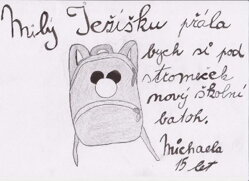 Milý Ježíšku přála
bych si pod
stromeček
nový školní
batoh.
Michaela
15 let